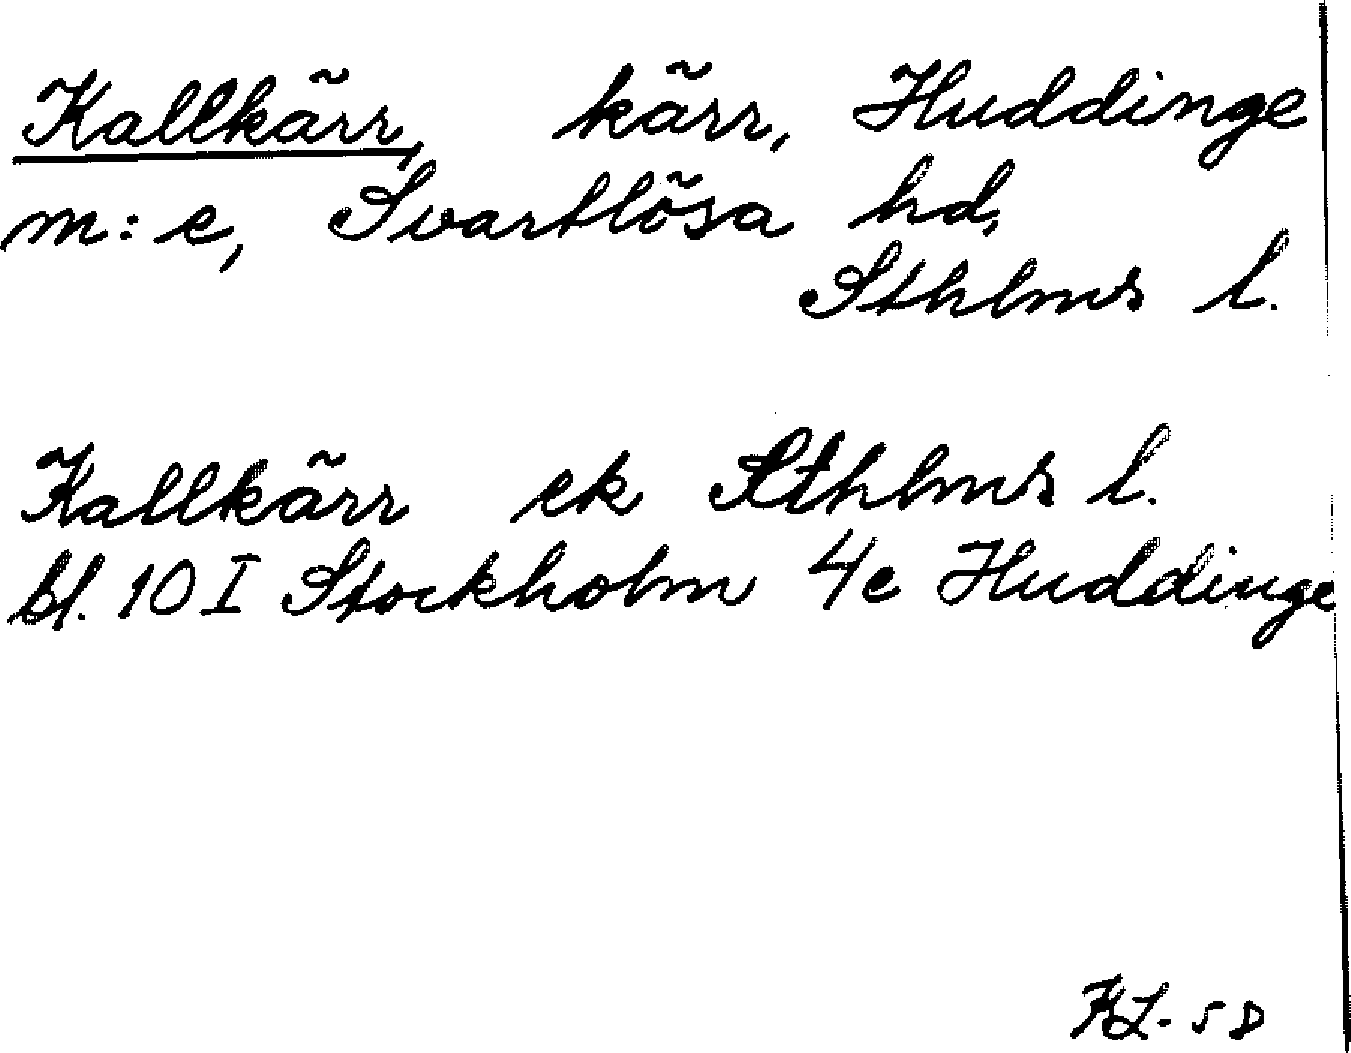 Kallkärr, kärr, Huddinge
m:e, Svartlösa hd,
Sthlms l.
Kallkärr ek Sthlms l.
bl. 10 I Stockholm 4e Huddinge
KL-58